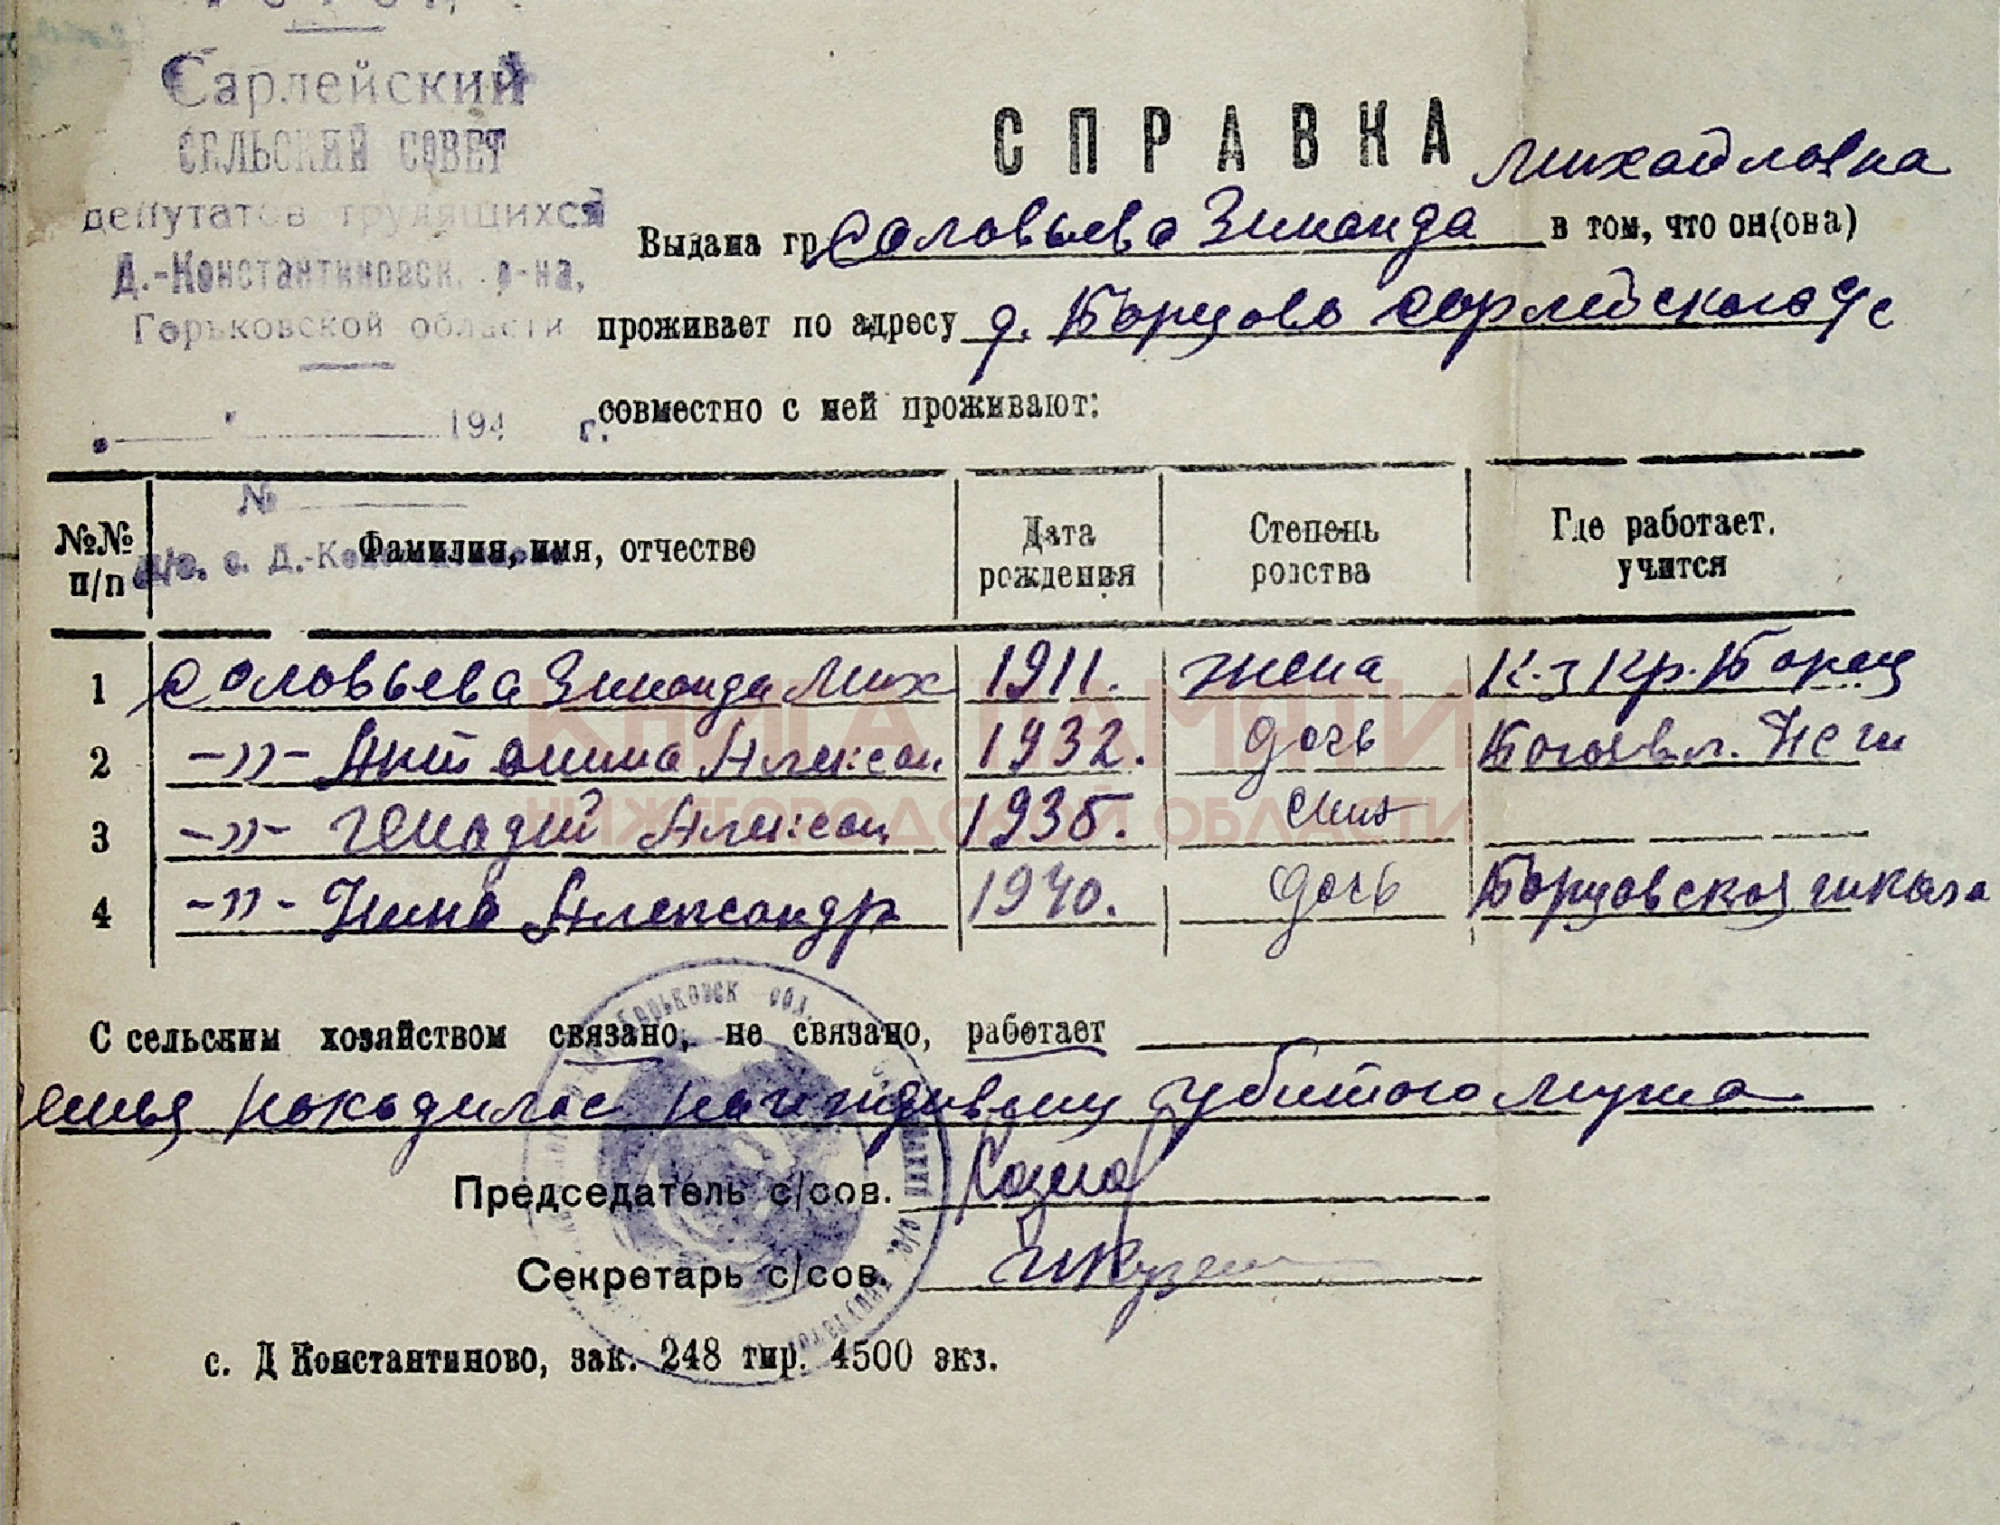 Сарлейский
СЕЛЬСКИЙ СОВЕТ
депутатов трудящихся
Д.-Константиновск. р-на,
Горьковской области
194 г.
№
п/о. с. Д.-Константиново
СПРАВКА
Михайловна
Выдана гр Соловьева Зинаида в том, что он(она)
проживает по адресу д. Борцово Сарлейского с/с
совместно с ней проживают:
№№ п/п Фамилия, имя, отчество Дата рождения Степень родства Где работает. учится
1 Соловьева Зинаида Мих 1911. жена К-з Кр. Борец
2 -"- Антонина Алексан 1932. дочь Богоявл.
3 -"- Генадий Алексан 1935. сын
4 -"- Нина Александр 1940. дочь Борцовская школа
С сельским хозяйством связано, не связано, работает
семья находилас на иждивении убитого мужа
Председатель с/сов.
Секретарь с/сов.
с. Д Константиново, зак. 248 тир. 4500 экз.
КНИГА ПАМЯТИ
НИЖЕГОРОДСКОЙ ОБЛАСТИ